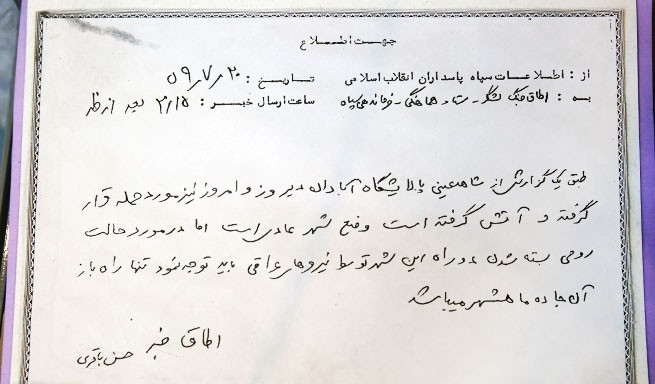 جهت اطلاع
از : اطلاعات سپاه پاسداران انقلاب اسلامی تاریخ : ۵۹ر۷ر۲۰
به : اطاق جنگ لشگر - ستاد هماهنگی - فرماندهی سپاه ساعت ارسال خبر : ۳/۱۵ بعد از ظهر
طبق یک گزارش از شاهد عینی پالایشگاه آبادان دیروز و امروز نیز مورد حمله قرار
گرفته و آتش گرفته است وضع شهر عادی است اما در مورد حالت
روحی بسته شدن دو راه این شهر توسط نیروهای عراقی باید توجه نمود تنها راه باز
آن جاده ماهشهر میباشد
اطاق خبر حسن باقری